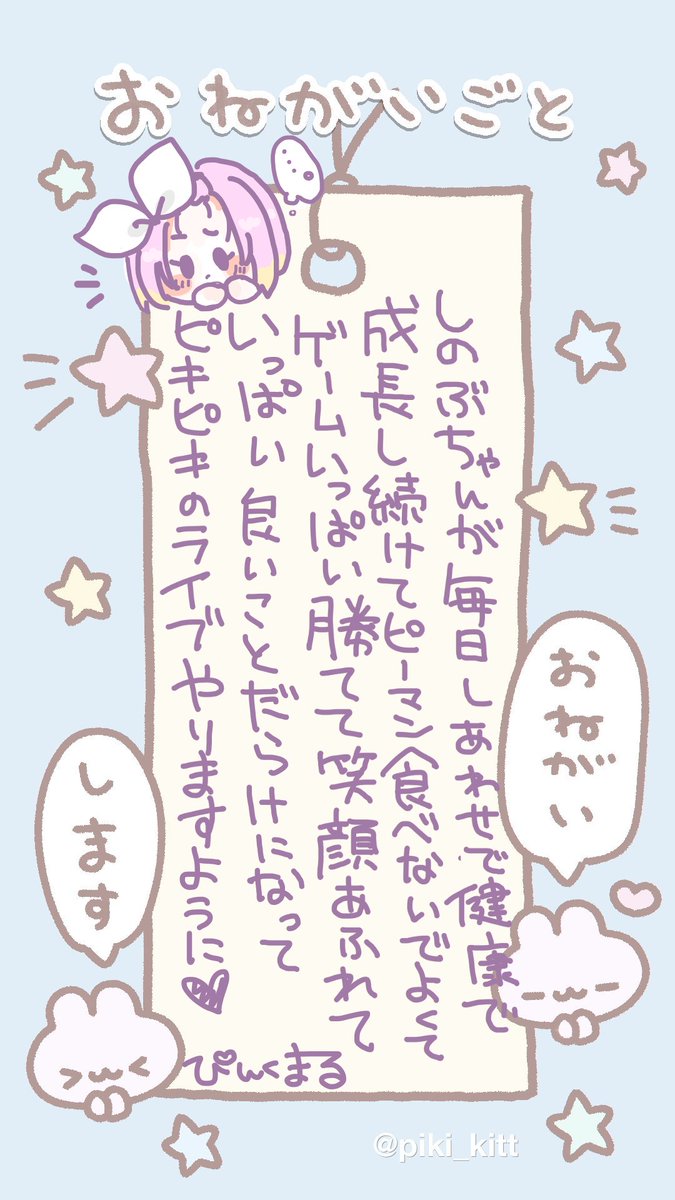 おねがいごと
しのぶちゃんが毎日しあわせで健康で
成長し続けてピーマン食べないでよくて
ゲームいっぱい勝てて笑顔あふれて
いっぱい良いことだらけになって
ピキピキのライブやりますように♥
ぴんくまる
おねがい
します
@piki_kitt